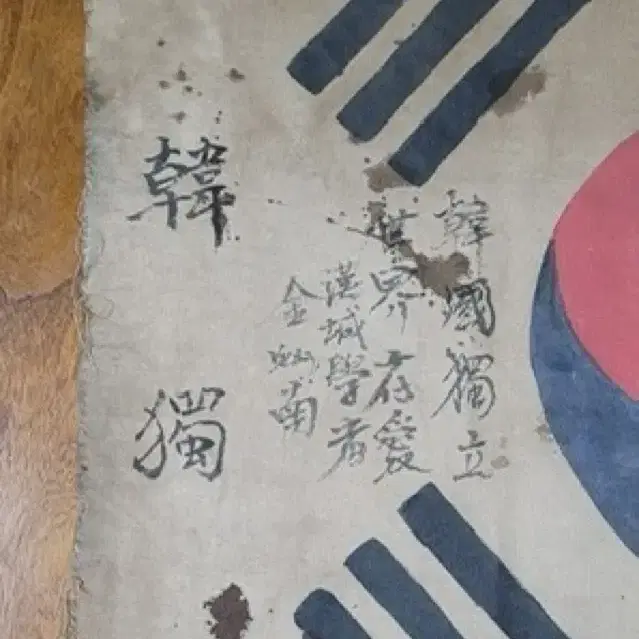 韓國獨立
世界存愛
漢城學者
金
韓
獨